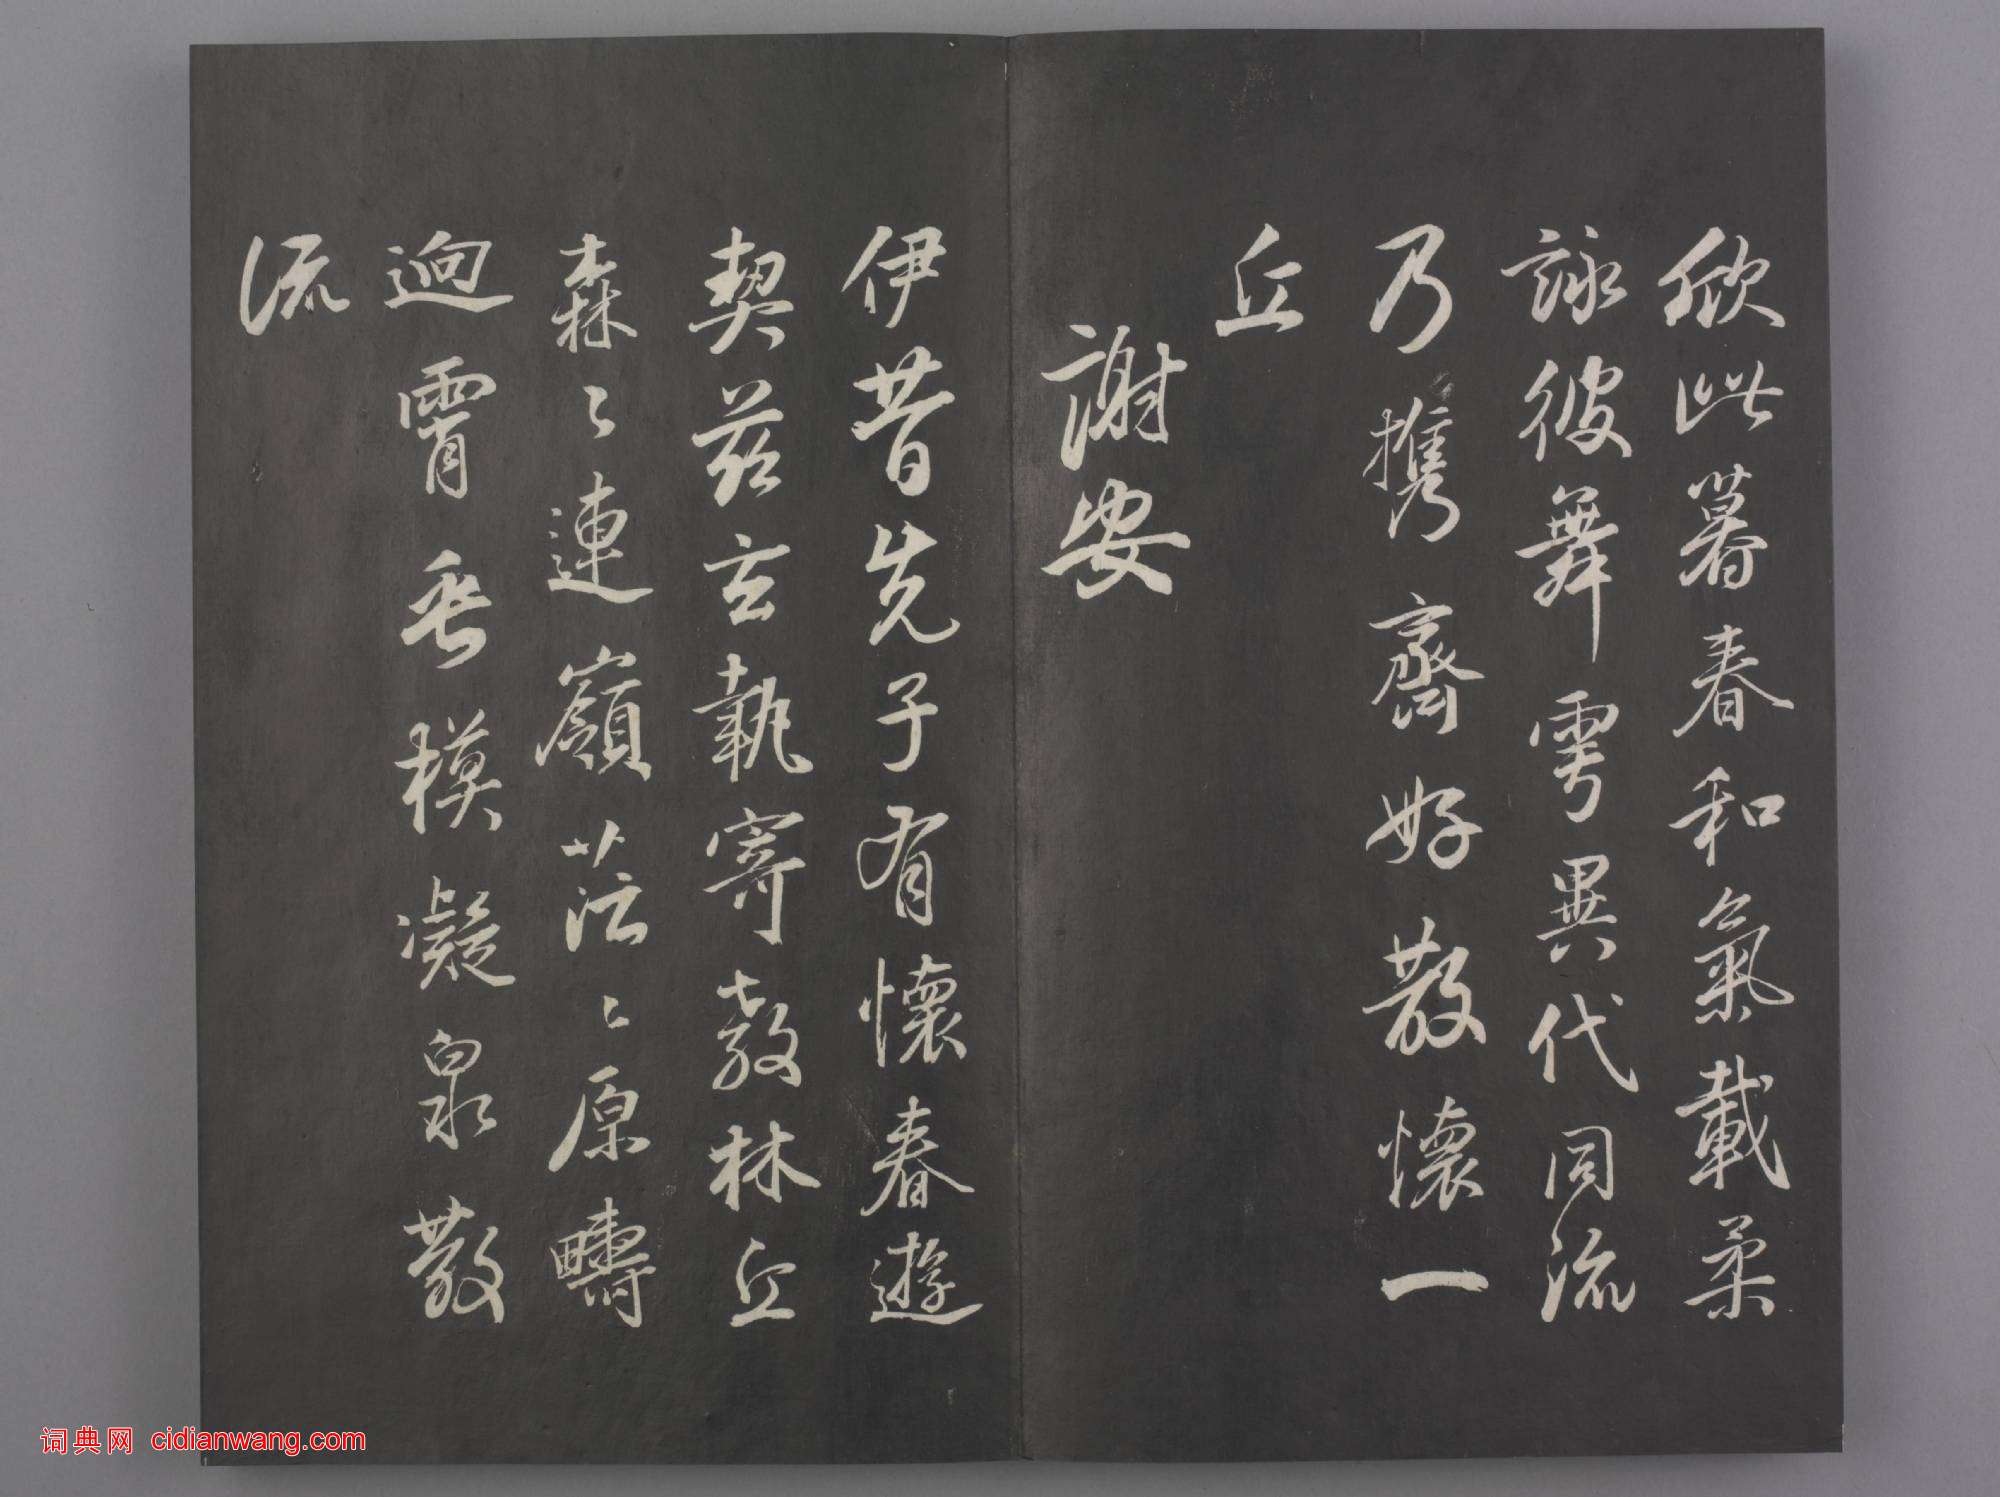 欣此暮春和氣載柔
詠彼舞雩異代同流
乃携齋好散懷一
丘
謝安
伊昔先子有懷春遊
契茲言執寄敖林丘
森〻連嶺茫〻原疇
迥霄垂模凝泉散
流
词典网 cidianwang.com